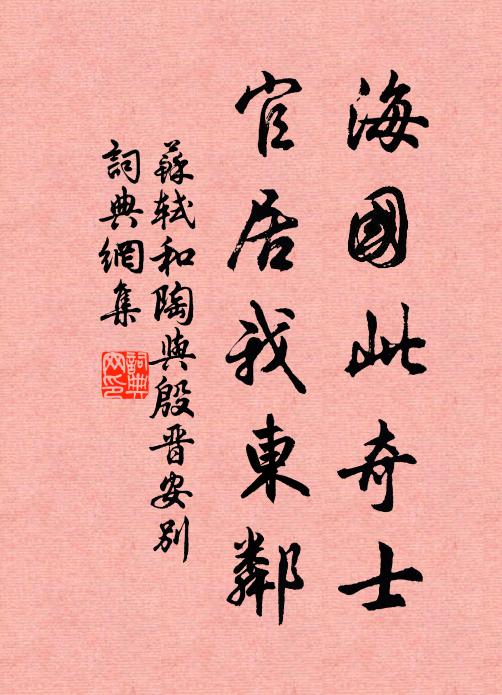 海國此奇士
官居我東鄰
蘇軾和陶與殷晋安別
詞典網集
詞典網印